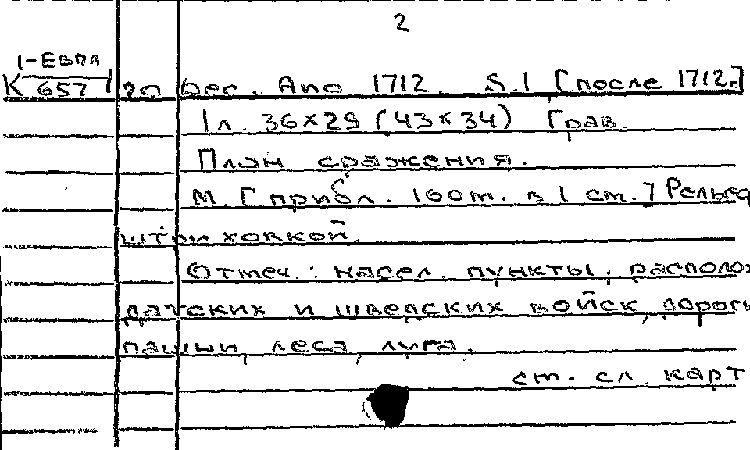 2
1-Евпл
К 657 20 Dec. Ano 1712. S.l [после 1712г.]
1л. 36×29 (43×34) Грав.
План сражения.
М. [прибл. 160м. в 1 см.] Рельеф
штриховкой.
Отмеч.: насел. пункты, располож
датских и шведских войск, дороги
пашни, леса, луга.
см. сл. карт